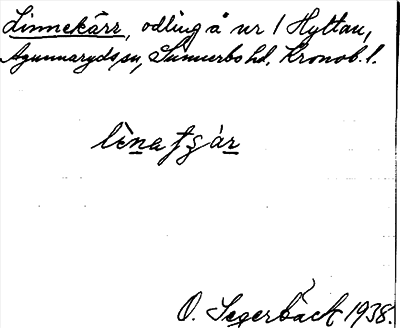 Linnekärr, odling å nr 1 Hyltan,
Agunnaryds sn, Sunnerbo hd, Kronob. l.
O. Segerbäck 1938.